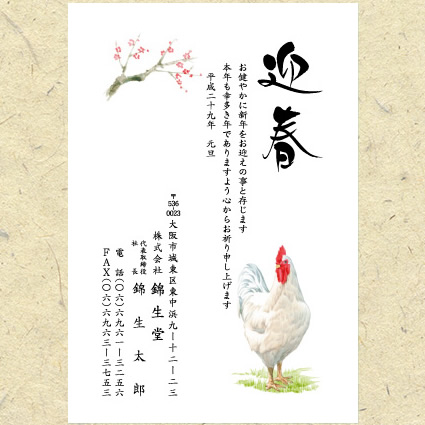 迎春
お健やかに新年をお迎えの事と存じます
本年も幸多き年でありますよう心からお祈り申し上げます
平成二十九年　元旦
〒536-0023 大阪市城東区東中浜九ー十二ー二三
株式会社　錦生堂
代表取締役
社長　錦生太郎
電話（〇六）六九六一ー三二五六
ＦＡＸ（〇六）六九六三ー三七五三